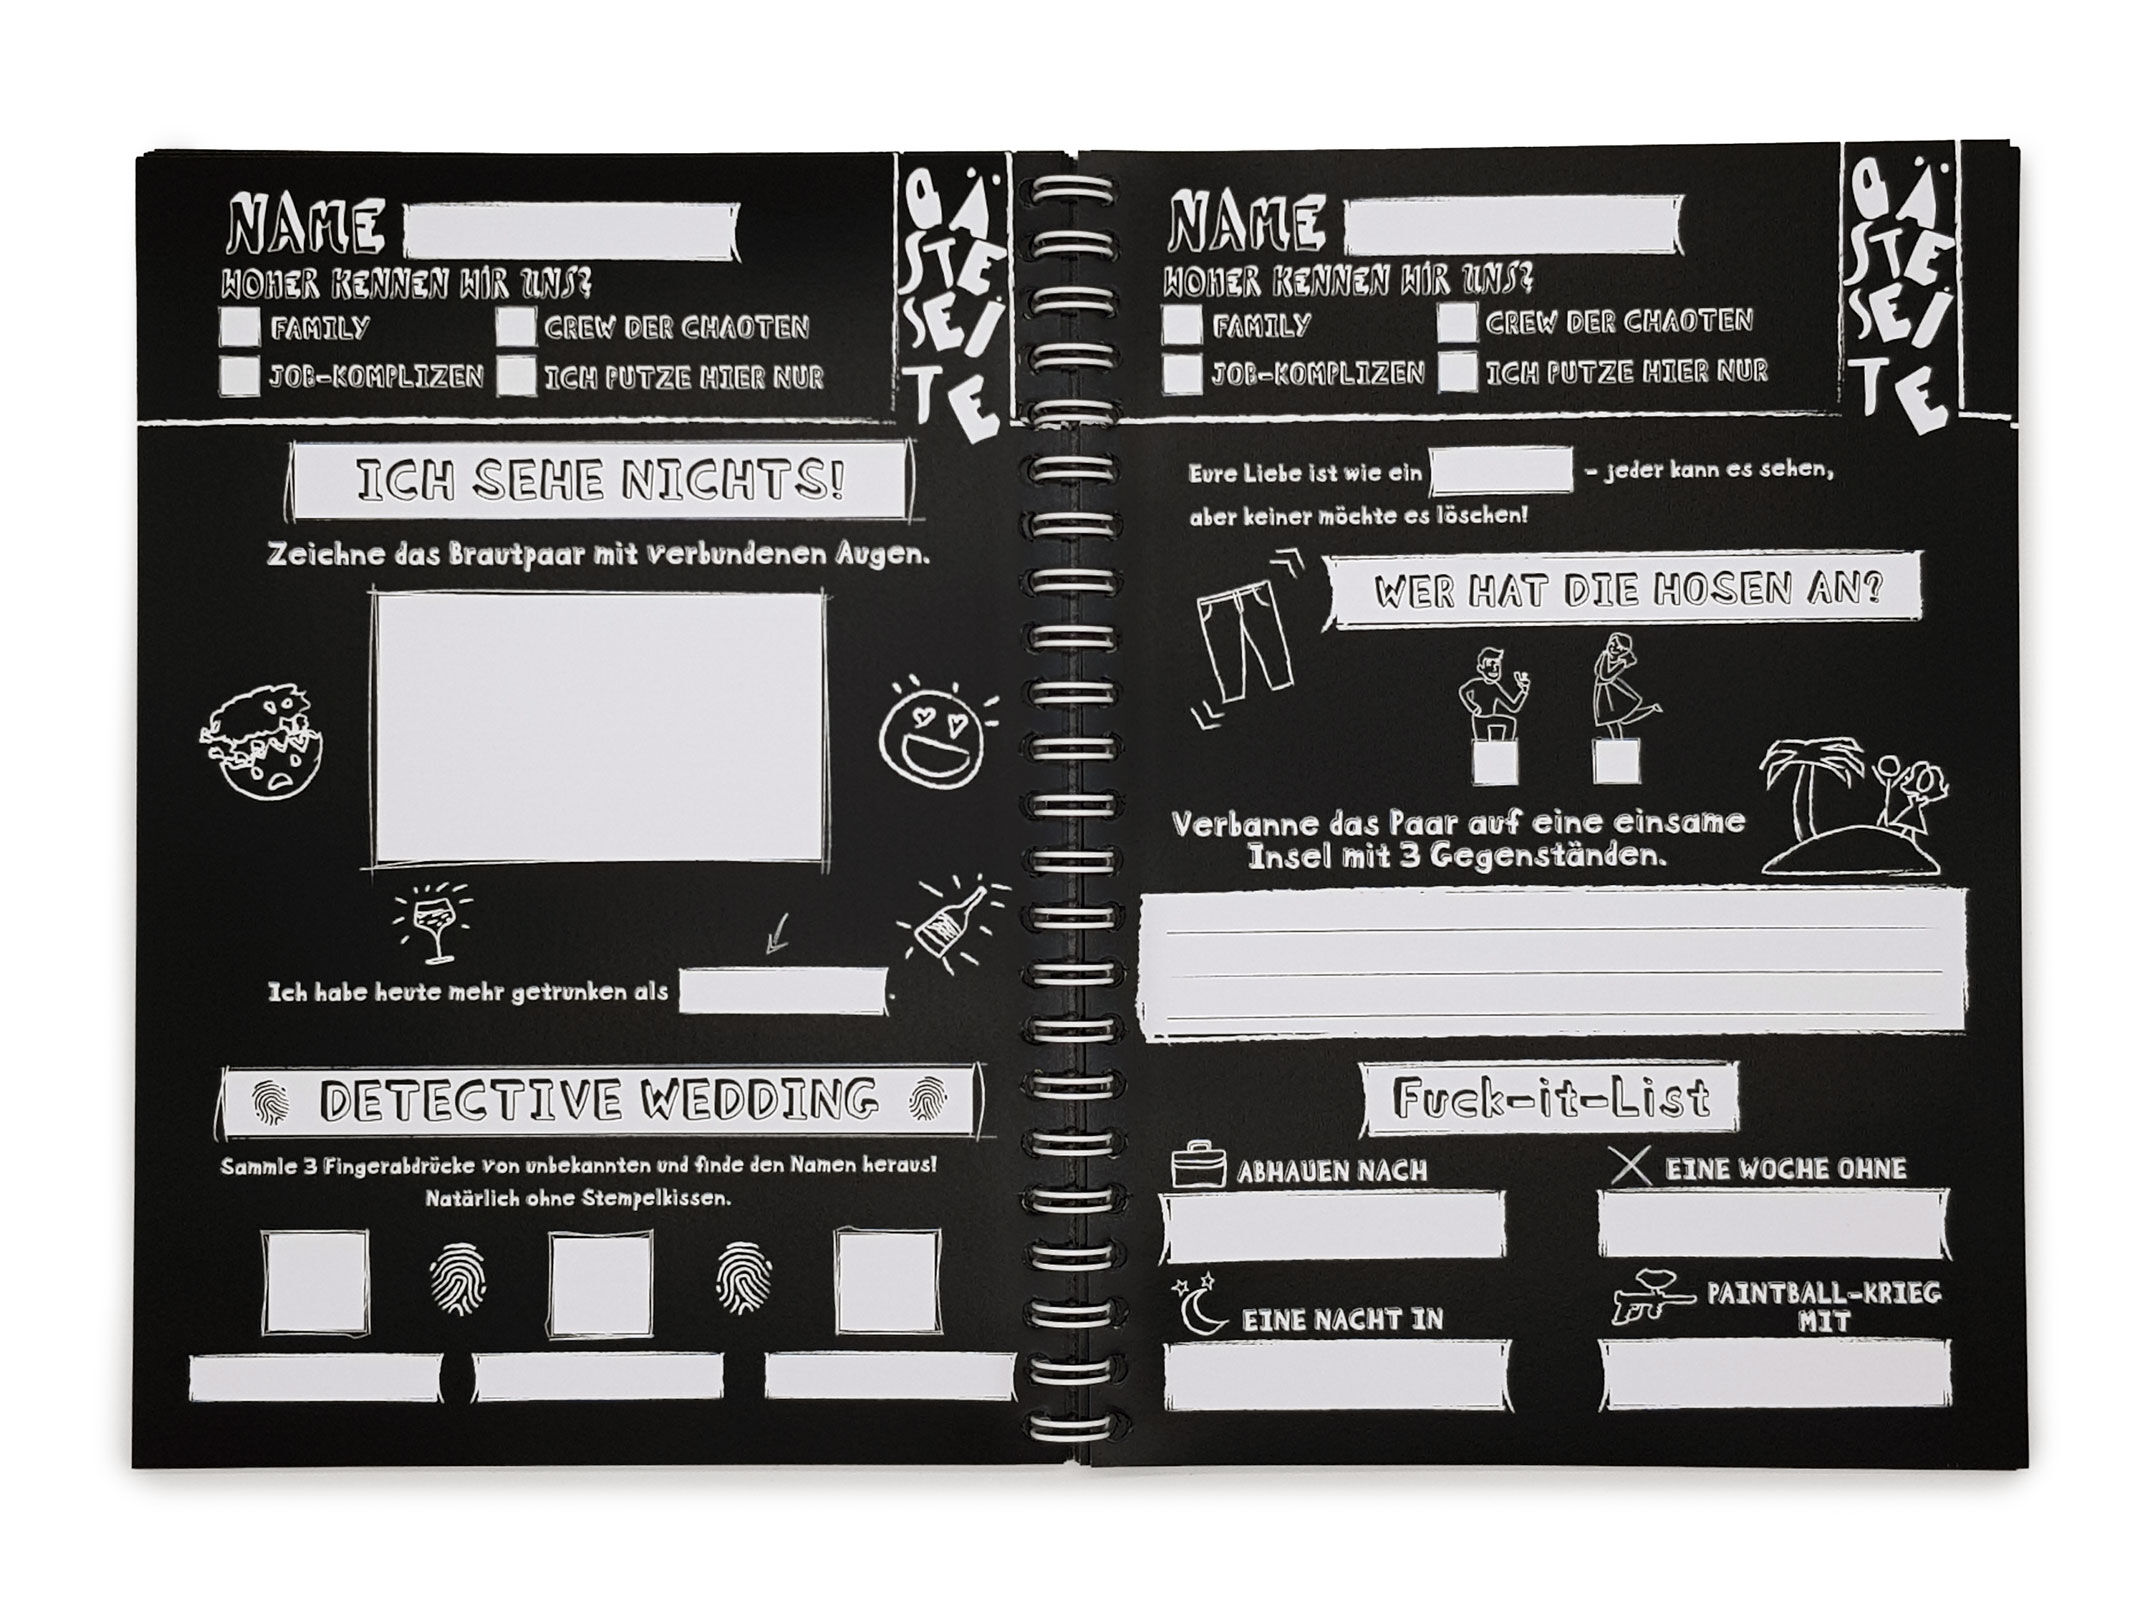 NAME
WOHER KENNEN WIR UNS?
FAMILY
CREW DER CHAOTEN
JOB-KOMPLIZEN
ICH PUTZE HIER NUR
GÄ
STE
SEI
TE
ICH SEHE NICHTS!
Zeichne das Brautpaar mit verbundenen Augen.
Ich habe heute mehr getrunken als .
DETECTIVE WEDDING
Sammle 3 Fingerabdrücke von unbekannten und finde den Namen heraus!
Natärlich ohne Stempelkissen.
NAME
WOHER KENNEN WIR UNS?
FAMILY
CREW DER CHAOTEN
JOB-KOMPLIZEN
ICH PUTZE HIER NUR
GÄ
STE
SEI
TE
Eure Liebe ist wie ein – jeder kann es sehen,
aber keiner möchte es löschen!
WER HAT DIE HOSEN AN?
Verbanne das Paar auf eine einsame
Insel mit 3 Gegenständen.
Fuck-it-List
ABHAUEN NACH
EINE WOCHE OHNE
EINE NACHT IN
PAINTBALL-KRIEG
MIT